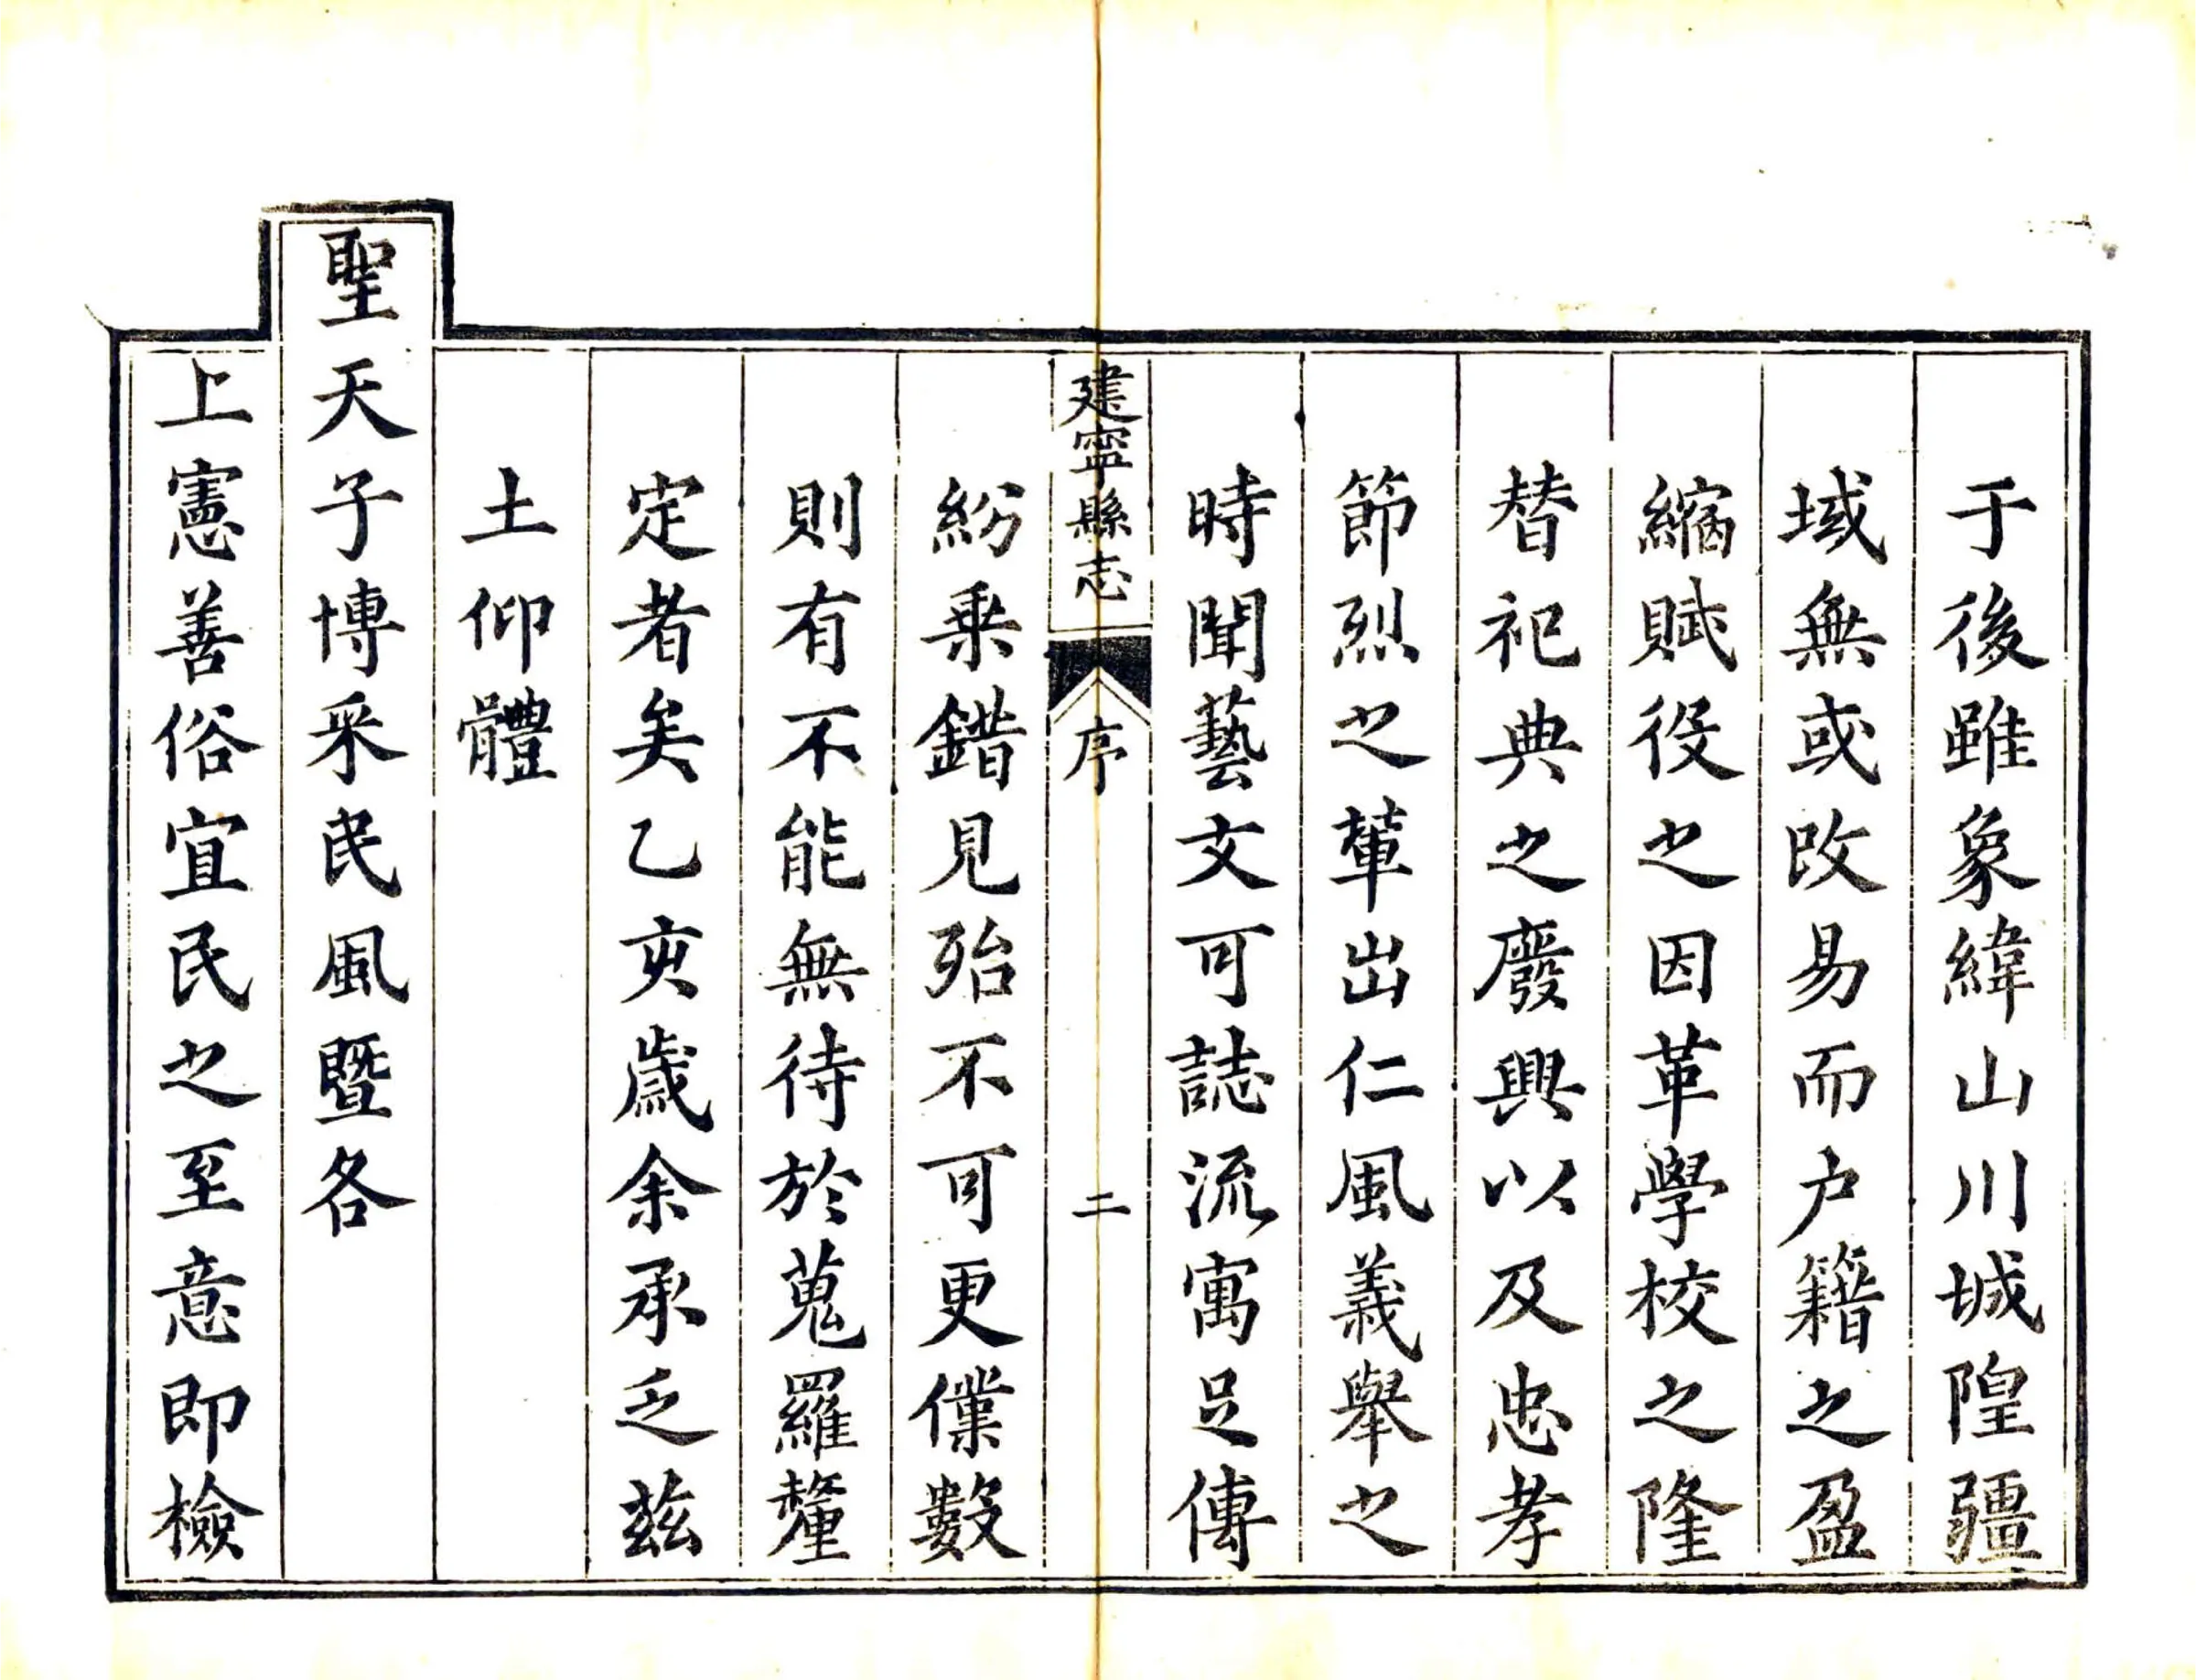 于後雖象緯山川城隍疆
域無或改易而户籍之盈
縮賦役之因革學校之隆
替祀典之廢興以及忠孝
節烈之輩出仁風義舉之
時聞藝文可誌流寓足傳
建寧縣志
序
二
紛乘錯見殆不可更僕數
則有不能無待於蒐羅釐
定者矣乙亥歲余承乏茲
土仰體
聖天子博采民風暨各
上憲善俗宜民之至意即檢